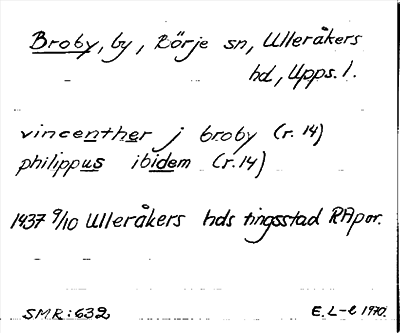 Broby, by, Börje sn, Ulleråkers
hd, Upps. l.
vincenther j broby (r. 14)
philippus ibidem (r. 14)
1437 9/10 Ulleråkers hds tingsstad RApor.
S.M.R: 632 E. L-l 1970.